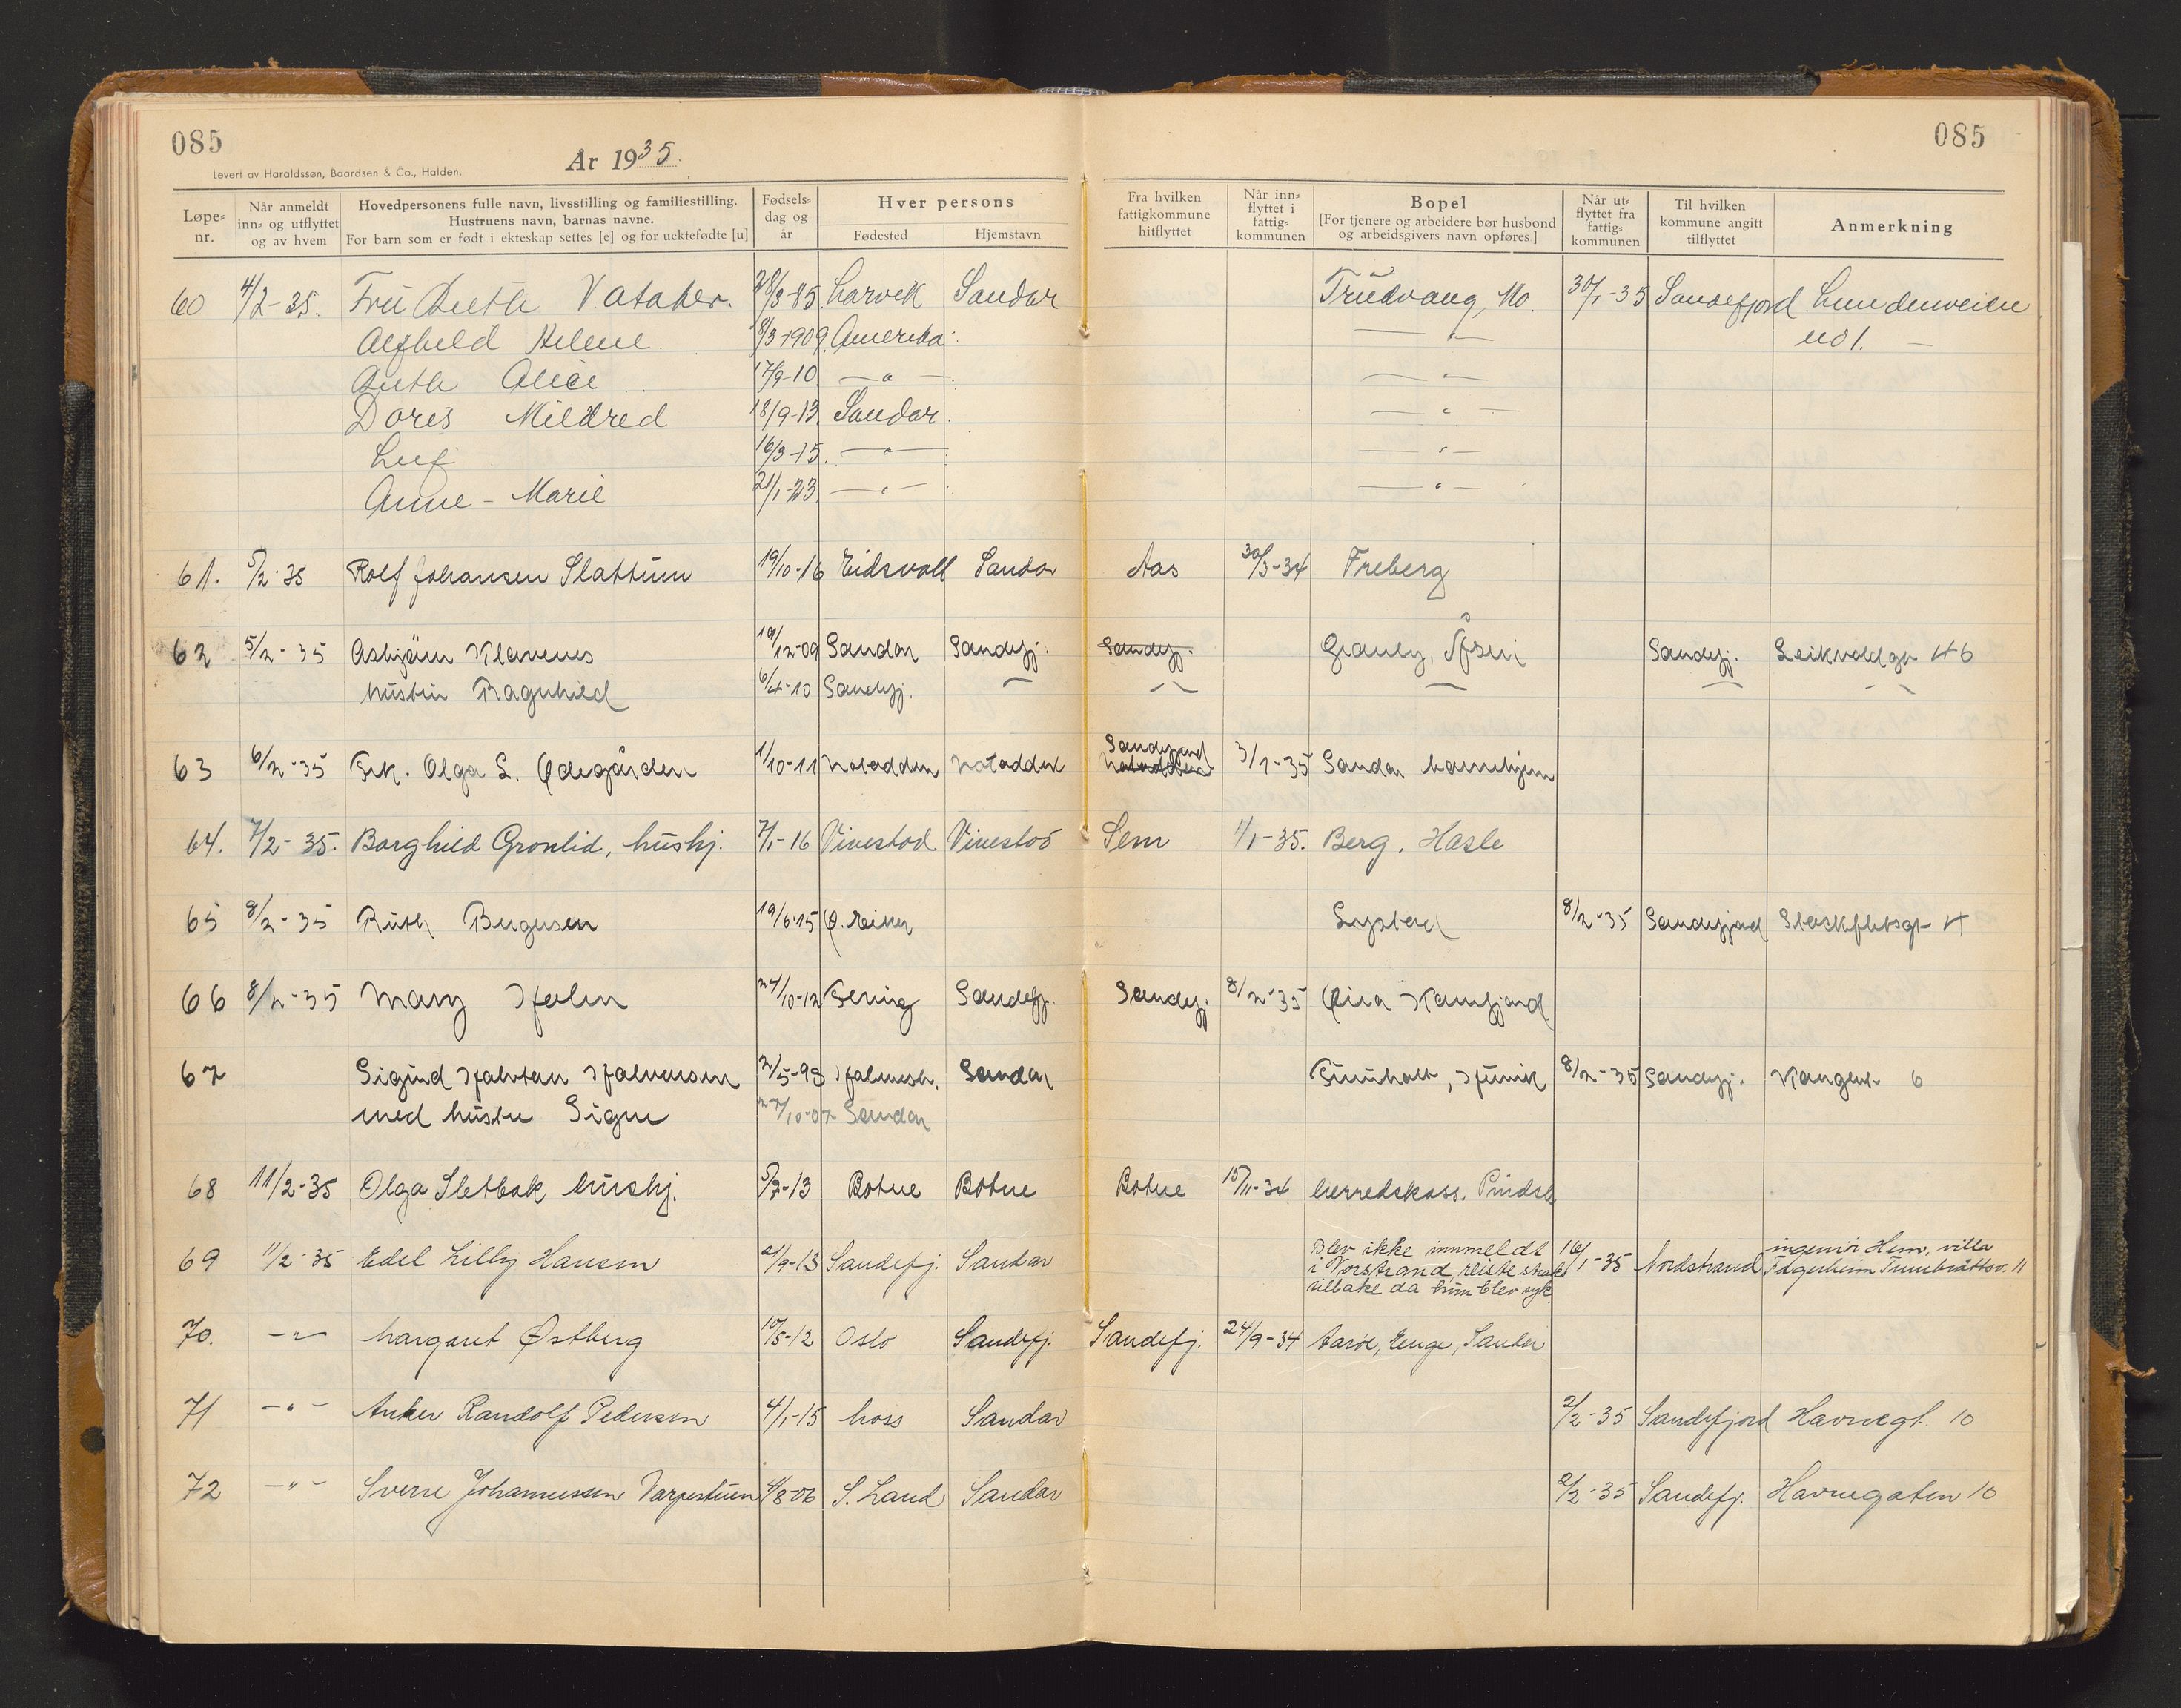 085
085
År 1935.
Levert av Haraldssøn, Baardsen & Co., Halden.
Løpe-nr. Når anmeldt inn- og utflyttet og av hvem Hovedpersonens fulle navn, livsstilling og familiestilling. Hustruens navn, barnas navne. For barn som er født i ekteskap settes [e] og for uektefødte [u] Fødsels-dag og år Hver persons Fødested Hjemstavn Fra hvilken fattigkommune hitflyttet Når inn-flyttet i fattig-kommunen Bopel [For tjenere og arbeidere bør husbond og arbeidsgivers navn opføres] Når ut-flyttet fra fattig-kommunen Til hvilken kommune angitt tilflyttet Anmerkning
60 4/2-35. Fru Vataker. 28/3-85 Larvik Sandar Trudvang, Mo. 30/1-35 Sandefjord Lundenveien
Helene. 8/3-1909. Amerika -"- no 1. -
Alice 17/9-10 -"- -"-
Doris Mildred 18/9-13 Sandar. -"-
Leif 16/3-15. -"- -"-
Anne-Marie 21/1-23. -"- -"-
61. 5/2-35 Rolf Johansen Slattum 19/10-16 Eidsvoll Sandar Aas 30/3-34 Freberg
62 5/2-35 Asbjørn Klavenes 19/12-09 Sandar Sandefj. Sandefj. Granly, Sandefj. 46
hustru Ragnhild 6/4-10 Sandefj. - -"- - - -"-
63 6/2-35 Frk. Olga S. Ødegården 1/10-11 Notodden Notodden Sandefjord Notodden 3/1-35 Sandar barnehjem
64. 7/2-35. Borghild Gronlid, hushj. 7/1-16 Vivestad Vivestad Sem 1/1-35. Berg, Hasle
65 8/2-35 Ruth 19/6-15 Ø. Eiker Lystad 8/2-35 Sandefjord 4
66 8/2-35 Mary Holm 24/10-12 Sandefj. Sandefj. 8/2-35 Kamfjord
67 Sigurd Halvorsen 2/5-93 Sandar Furuholt, Hunik 8/2-35 Sandefj. 6
med hustru Signe 27/10-07 Sandar
68 11/2-35 Olga Sletbak hushj. 5/7-13 Botne Botne Botne 15/11-34 herredskass. Pindsle
69 11/2-35 Edel Lilly Hansen 21/9-13 Sandefj. Sandar Blev ikke innmeldt 16/1-35 Nordstrand ingeniør Hem, villa
i Norstrand, reiste straks Tunbråttsv. 11
tilbake da hun blev syk.
70. -"- Margaret Østberg 10/5-12 Oslo Sandefj. Sandefj. 24/9-34 Aarøe, Enge, Sandar
71 -"- Anker Randolf Pedersen 4/1-15 Moss Sandar 2/2-35 Sandefjord Havnegt. 10
72 -"- Sverre Johannessen Varpestuen 4/8-06 S. Land Sandar 2/2-35 Sandefj. Havnegaten 10